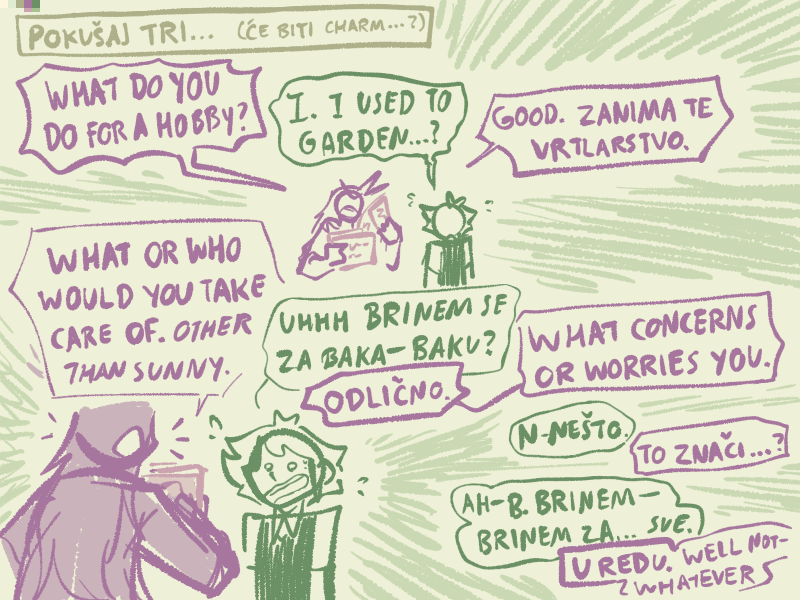 POKUŠAJ TRI... (ĆE BITI CHARM...?)
WHAT DO YOU
DO FOR A HOBBY?
I. I USED TO
GARDEN...?
GOOD. ZANIMA TE
VRTLARSTVO.
WHAT OR WHO
WOULD YOU TAKE
CARE OF. OTHER
THAN SUNNY.
UHHH BRINEM SE
ZA BAKA-BAKU?
ODLIČNO.
WHAT CONCERNS
OR WORRIES YOU.
N-NEŠTO.
TO ZNAČI...?
AH-B. BRINEM-
BRINEM ZA... SVE.
U REDU. WELL NOT-
WHATEVER